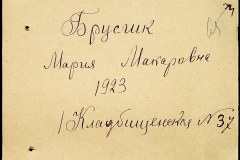 Брусник
Мария Макаровна
1923
1 Кладбищенская N 37